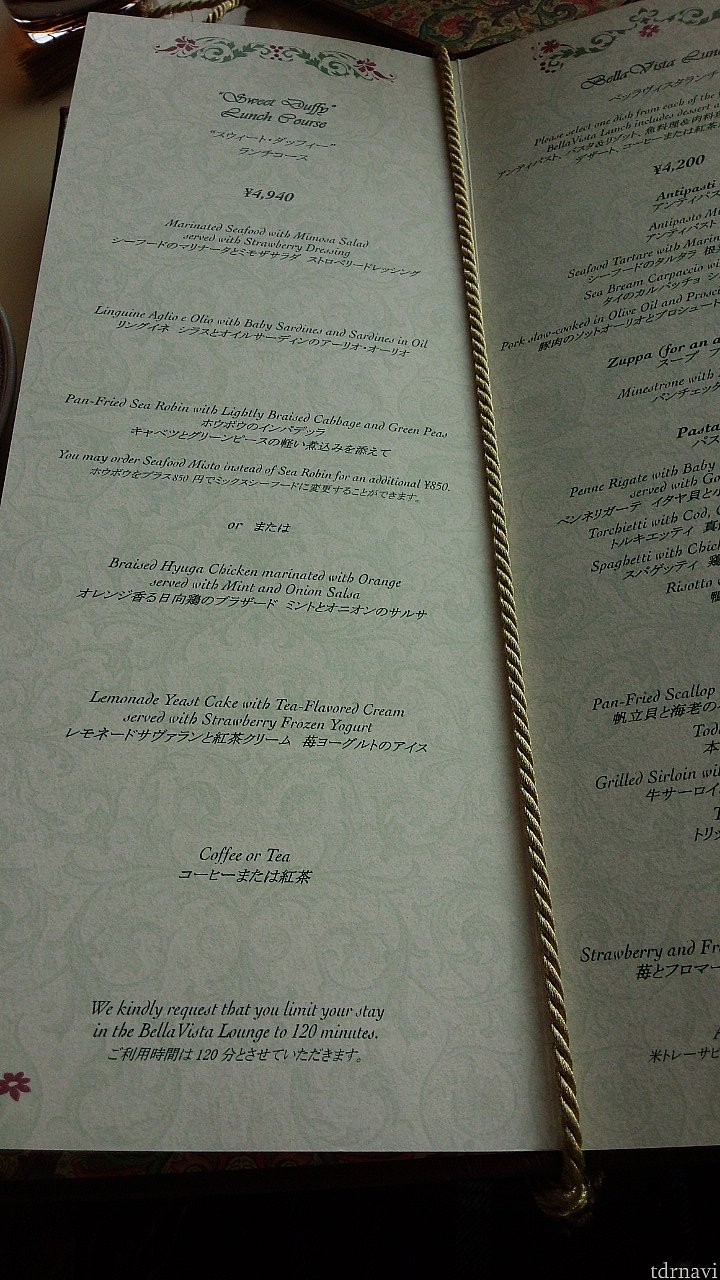 "Sweet Duffy"
Lunch Course
"スウィート・ダッフィー"
ランチコース
¥4,940
Marinated Seafood with Mimosa Salad
served with Strawberry Dressing
シーフードのマリナータとミモザサラダ ストロベリードレッシング
Linguine Aglio e Olio with Baby Sardines and Sardines in Oil
リングイネ シラスとオイルサーディンのアーリオ・オーリオ
Pan-Fried Sea Robin with Lightly Braised Cabbage and Green Peas
ホウボウのインパデッラ
キャベツとグリーンピースの軽い煮込みを添えて
You may order Seafood Misto instead of Sea Robin for an additional ¥850.
ホウボウをプラス850円でミックスシーフードに変更することができます。
or または
Braised Hyuga Chicken marinated with Orange
served with Mint and Onion Salsa
オレンジ香る日向鶏のブラザード ミントとオニオンのサルサ
Lemonade Yeast Cake with Tea-Flavored Cream
served with Strawberry Frozen Yogurt
レモネードサヴァランと紅茶クリーム 苺ヨーグルトのアイス
Coffee or Tea
コーヒーまたは紅茶
We kindly request that you limit your stay
in the BellaVista Lounge to 120 minutes.
ご利用時間は120分とさせていただきます。
BellaVista Lun
ベッラヴィスタランチ
Please select one dish from each of the
BellaVista Lunch includes dessert
アンティパスト、パスタ&リゾット、魚料理&肉料理
デザート、コーヒーまたは紅茶
¥4,200
Antipasti
アンティパス
Antipasto M
アンティパスト
Seafood Tartare with Marin
シーフードのタルタラ 根
Sea Bream Carpaccio wi
タイのカルパッチョ シ
Pork slow-cooked in Olive Oil and Prosc
豚肉のソットオーリオとプロシュート
Zuppa (for an a
スープ フ
Minestrone with
パンチェッ
Pasta
パス
Penne Rigate with Baby
served with Go
ペンネリガーテ イタヤ貝と
Torchietti with Cod,
トルキエッティ 真
Spaghetti with Chick
スパゲッティ 鶏
Risotto
鴨
Pan-Fried Scallop
帆立貝と海老の
Tod
本
Grilled Sirloin wi
牛サーロイ
T
トリッ
Strawberry and Fr
苺とフロマー
米トレーサビ
tdrnavi